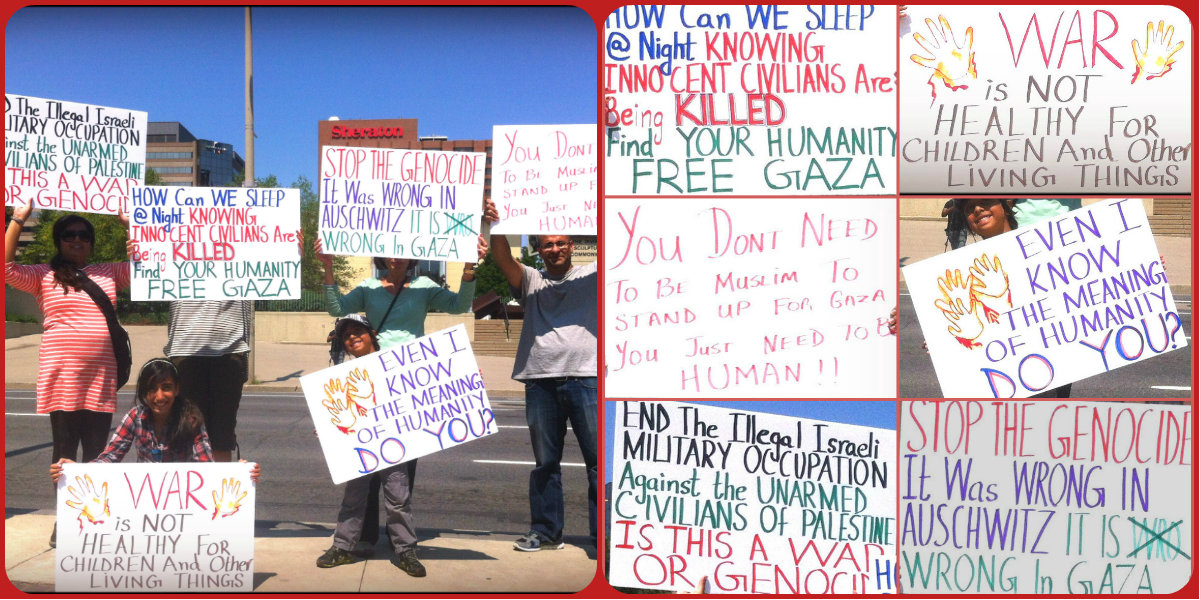 D The Illegal Israeli
LITARY OCCUPATION
inst the UNARMED
VILIANS OF PALESTINE
THIS A WAR
OR GENOCI
HOW Can WE SLEEP
@ Night KNOWING
INNOCENT CIVILIANS Are
Being KILLED
Find YOUR HUMANITY
FREE GAZA
Sheraton
STOP THE GENOCIDE
It Was WRONG IN
AUSCHWITZ IT IS WRO
WRONG In GAZA
YOU DONT
TO BE MUSLI
STAND UP F
YOU JUST NE
HUMAN
EVEN I
KNOW
THE MEANING
OF HUMANITY
DO YOU?
WAR
is NOT
HEALTHY FOR
CHILDREN And Other
LIVING THINGS
HOW Can WE SLEEP
@ Night KNOWING
INNOCENT CIVILIANS Are
Being KILLED
Find YOUR HUMANITY
FREE GAZA
WAR
is NOT
HEALTHY FOR
CHILDREN And Other
LIVING THINGS
YOU DONT NEED
TO BE MUSLIM TO
STAND UP FOR GAZA
YOU JUST NEED TO B
HUMAN !!
EVEN I
KNOW
THE MEANING
OF HUMANITY
DO YOU?
END The Illegal Israeli
MILITARY OCCUPATION
Against the UNARMED
CIVILIANS OF PALESTINE
IS THIS A WAR
OR GENOCI
H
STOP THE GENOCIDE
It Was WRONG IN
AUSCHWITZ IT IS WRO
WRONG In GAZA